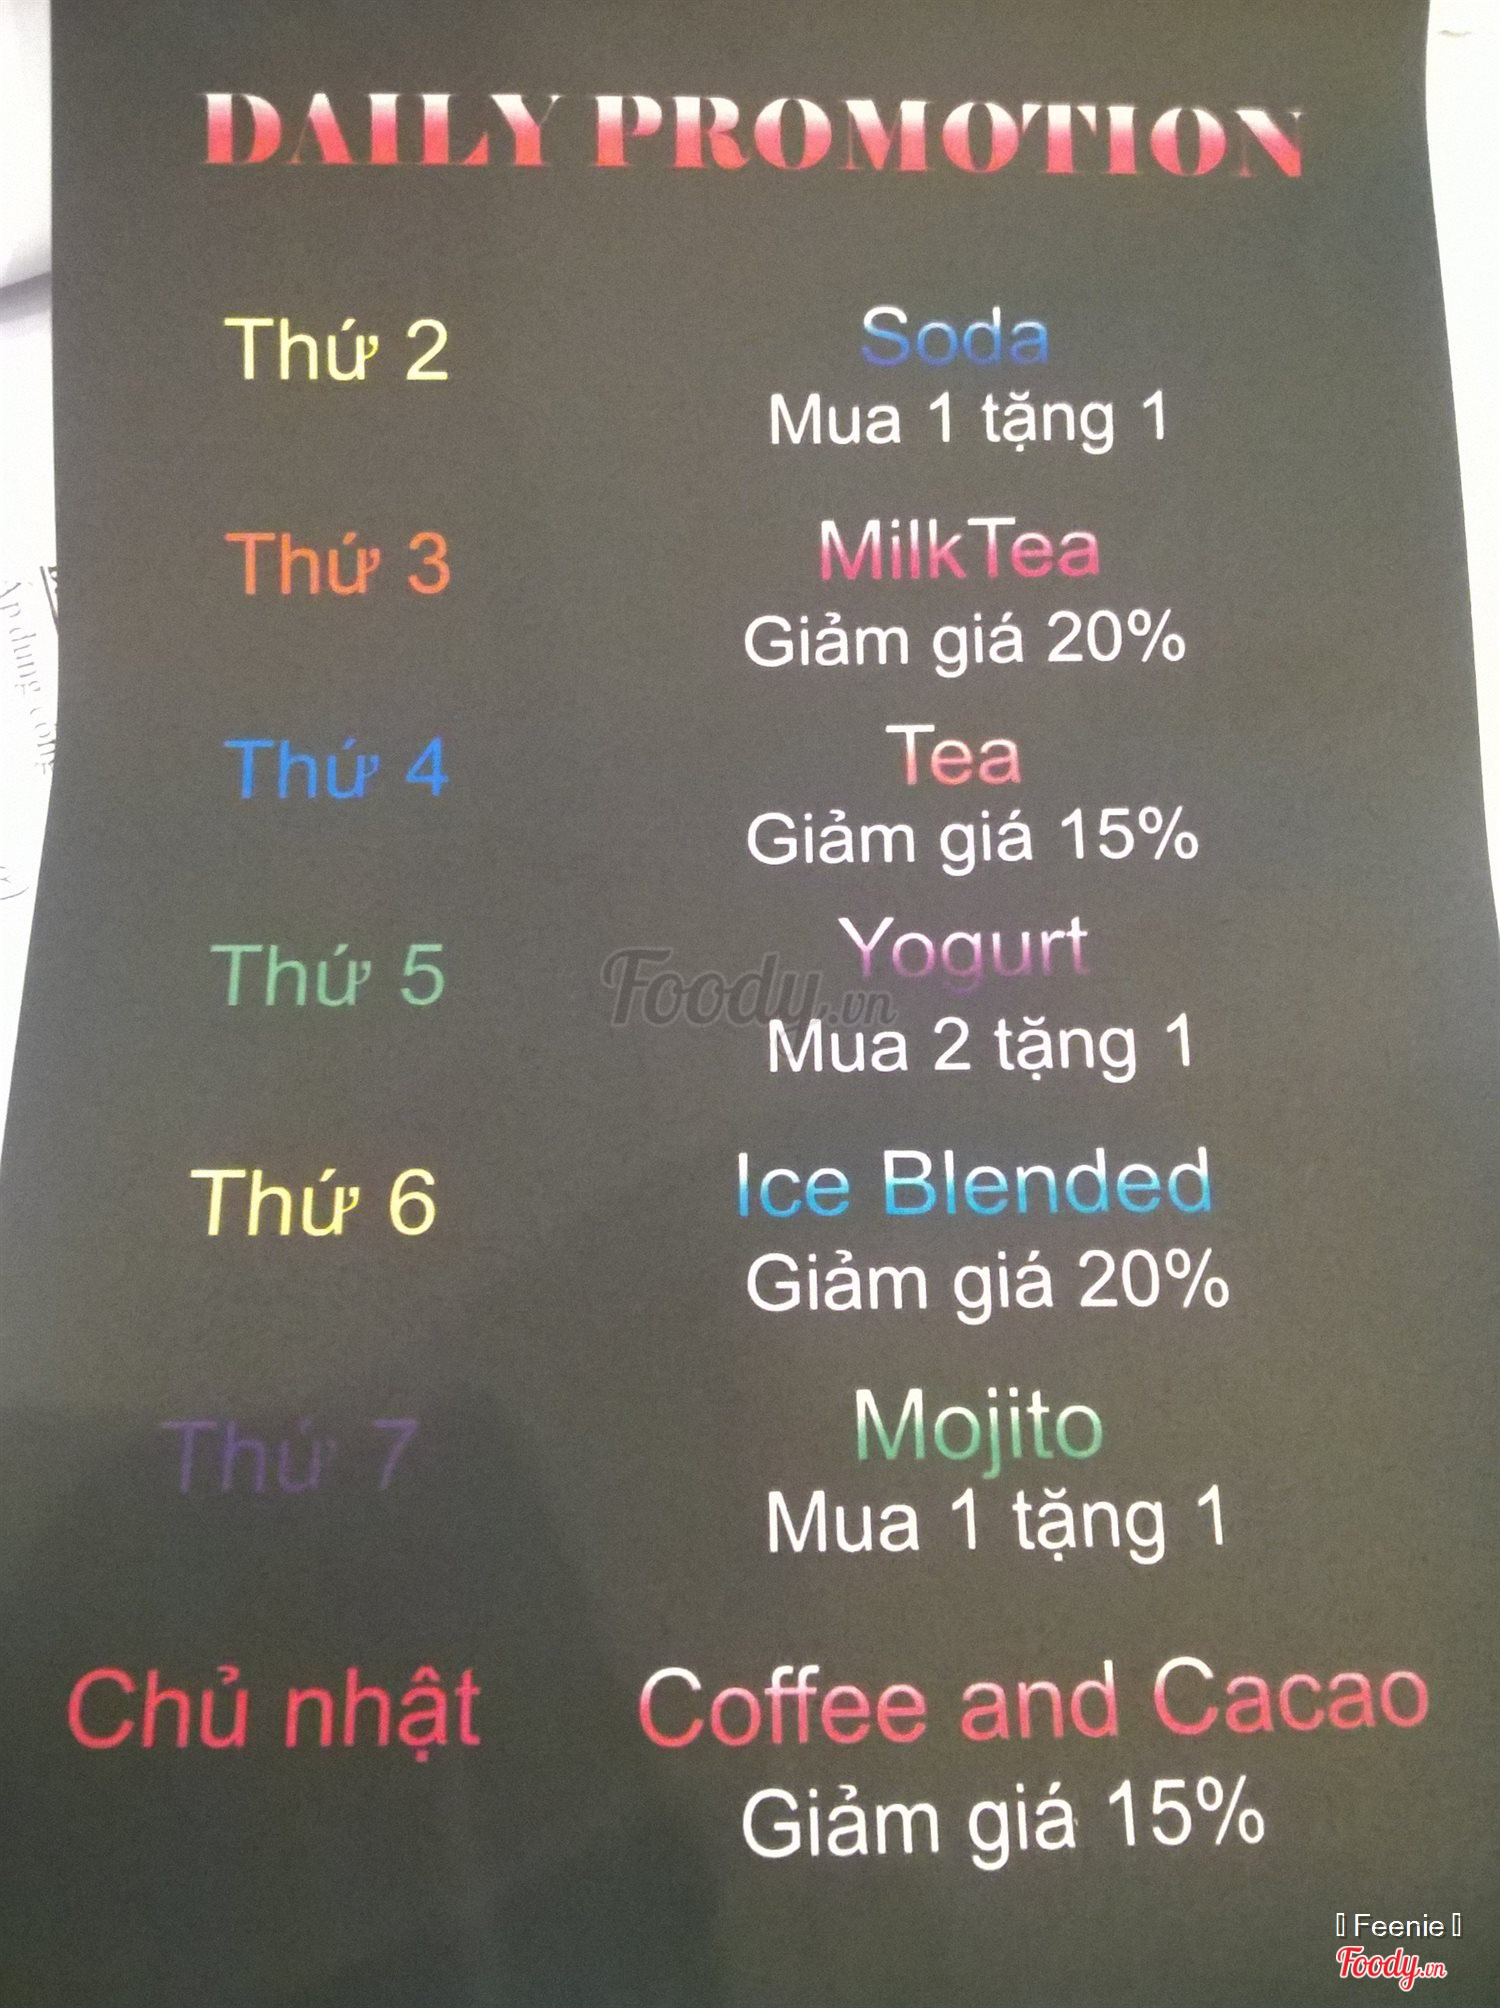 DAILY PROMOTION
Thứ 2
Soda
Mua 1 tặng 1
Thứ 3
MilkTea
Giảm giá 20%
Thứ 4
Tea
Giảm giá 15%
Thứ 5
Yogurt
Mua 2 tặng 1
Thứ 6
Ice Blended
Giảm giá 20%
Thứ 7
Mojito
Mua 1 tặng 1
Chủ nhật
Coffee and Cacao
Giảm giá 15%
Áp dụng
Foody.vn
Feenie
Foody.vn